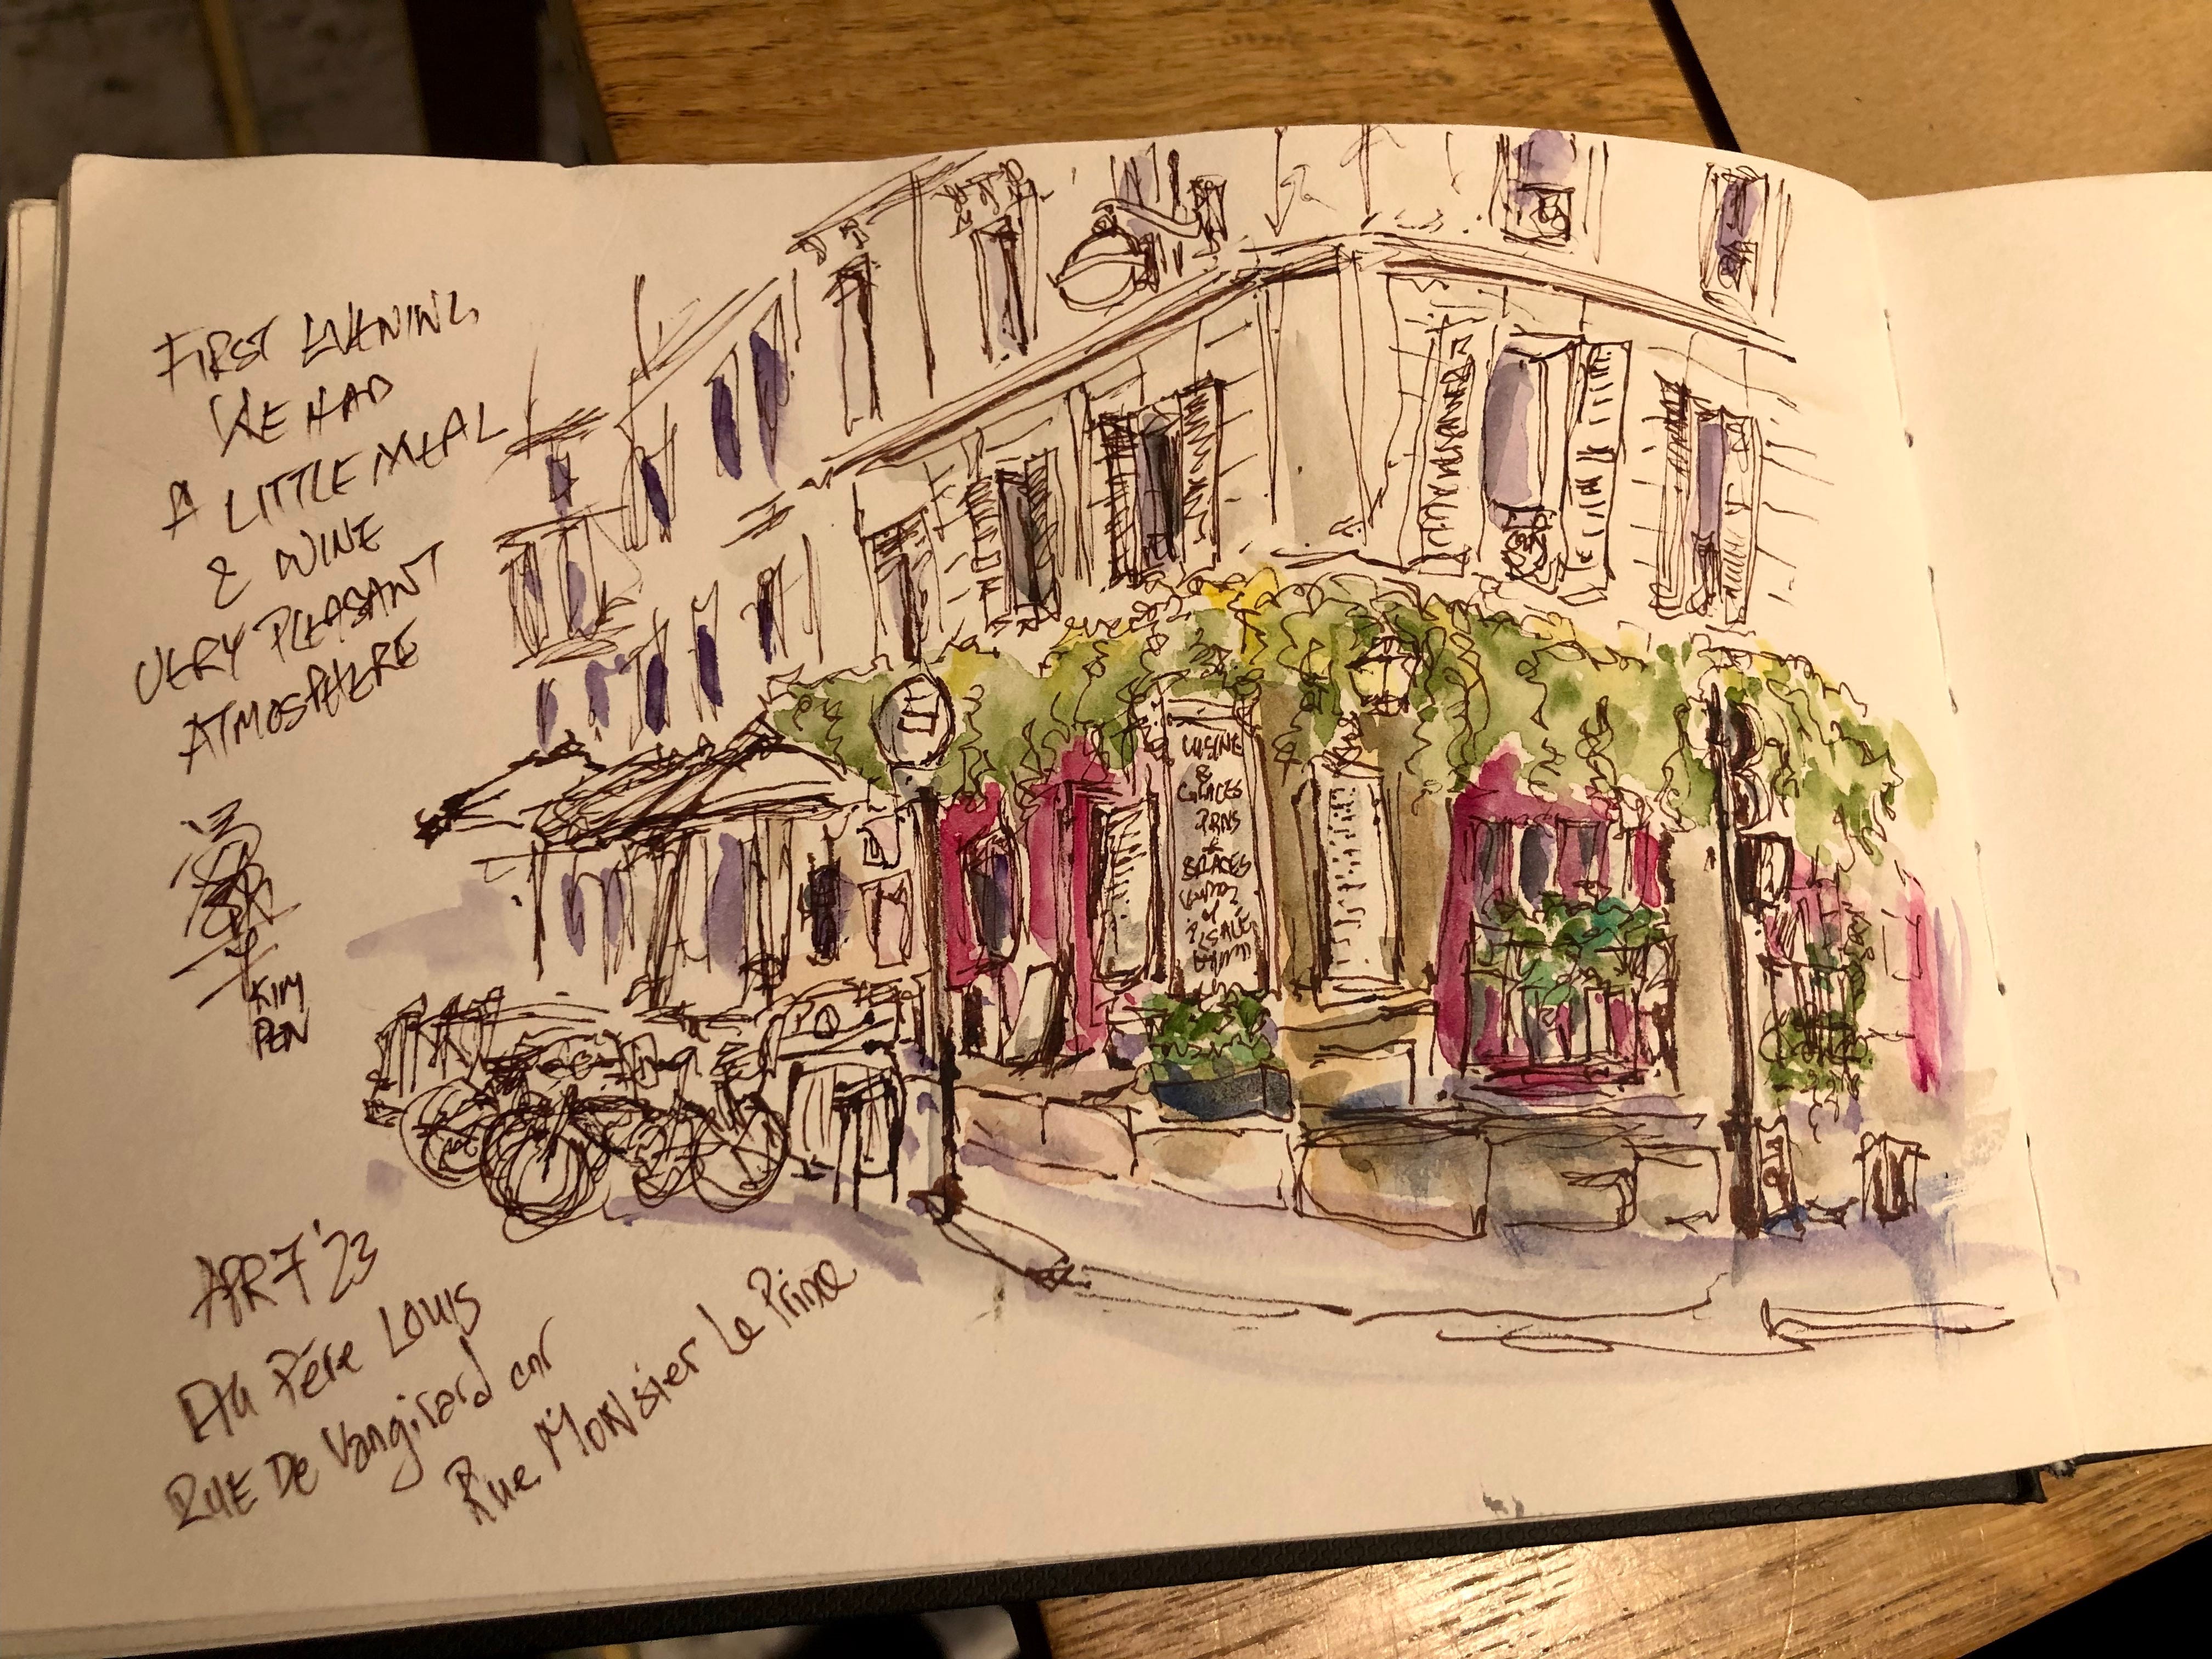 FIRST EVENING,
WE HAD
A LITTLE MEAL
& WINE
VERY PLEASANT
ATMOSPHERE
KIM
PEN
APR 7 '23
Au Père Louis
RUE De Vangirard cnr
Rue MONsier Le Prince
CUISINE
&
GLACES
BRACES